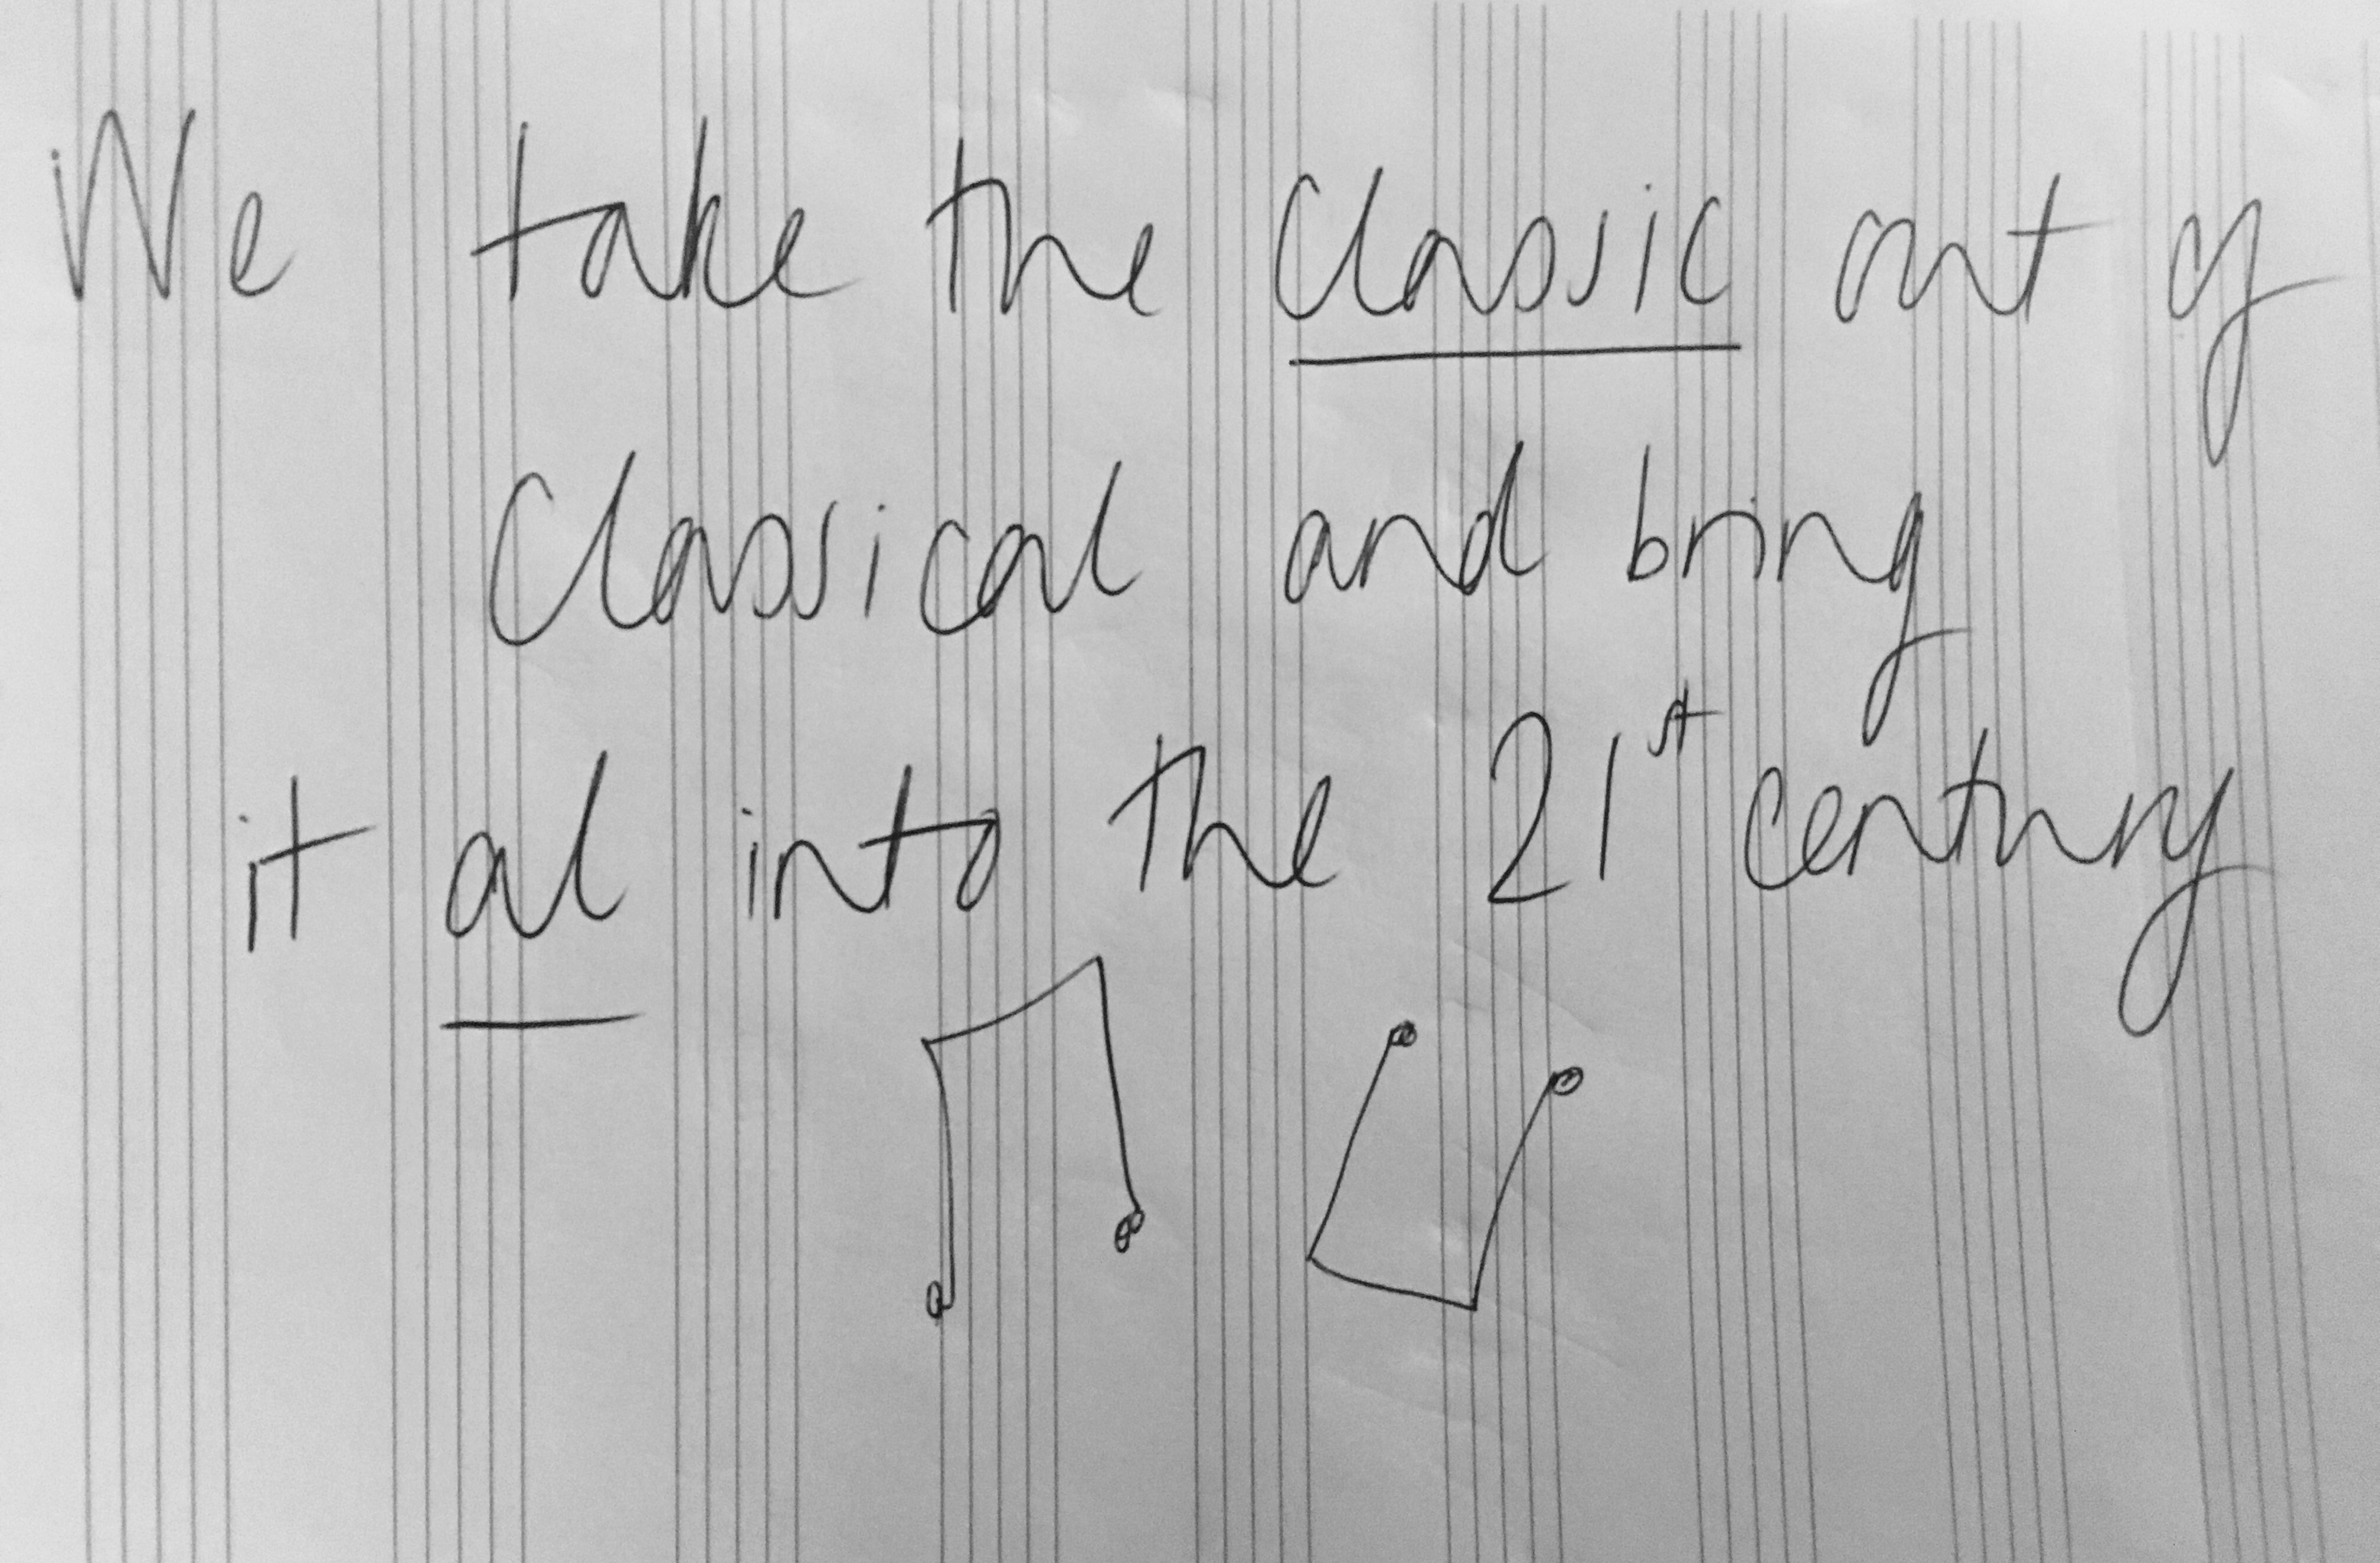 We take the classic out of
Classical and bring
it al into the 21st century